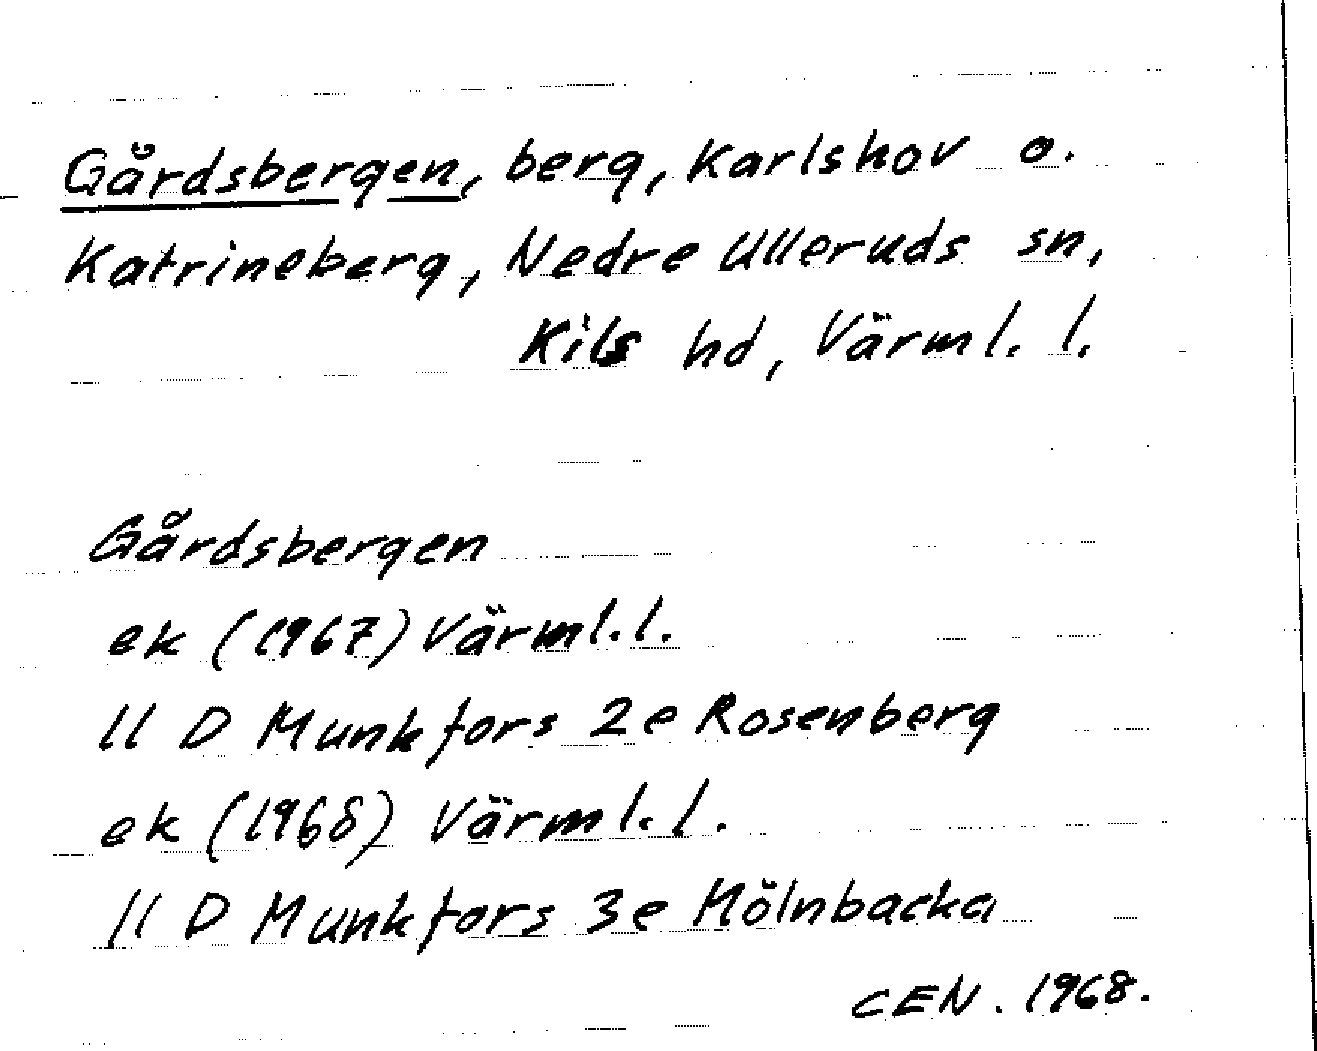 Gårdsbergen, berg, Karlshov o.
Katrineberg, Nedre Ulleruds sn,
Kils hd, Värml. l.
Gårdsbergen
ek (1967) Värml. l.
11 D Munkfors 2e Rosenberg
ek (1968) Värml. l.
11 D Munkfors 3e Mölnbacka
CEN. 1968.